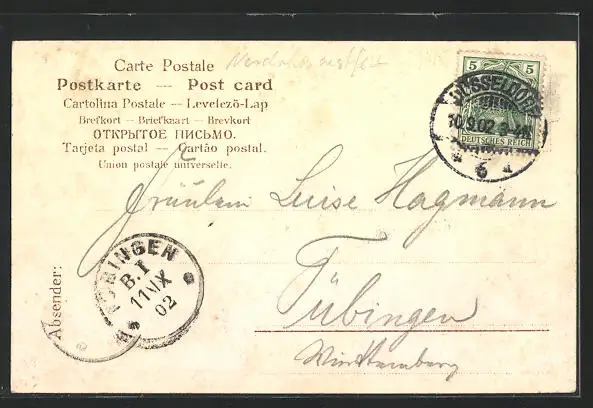 Carte Postale
Postkarte — Post card
Cartolina Postale — Levelező-Lap
Brefkort — Briefkaart — Brevkort
ОТКРЫТОЕ ПИСЬМО.
Tarjeta postal — Cartão postal.
Union postale universelle.
5 5
DÜSSELDORF
10.9.02
DEUTSCHES REICH
6
Fräulein Luise Hagmann
Tübingen
Württemberg
TÜBINGEN
B.I
11 IX
02
Absender: